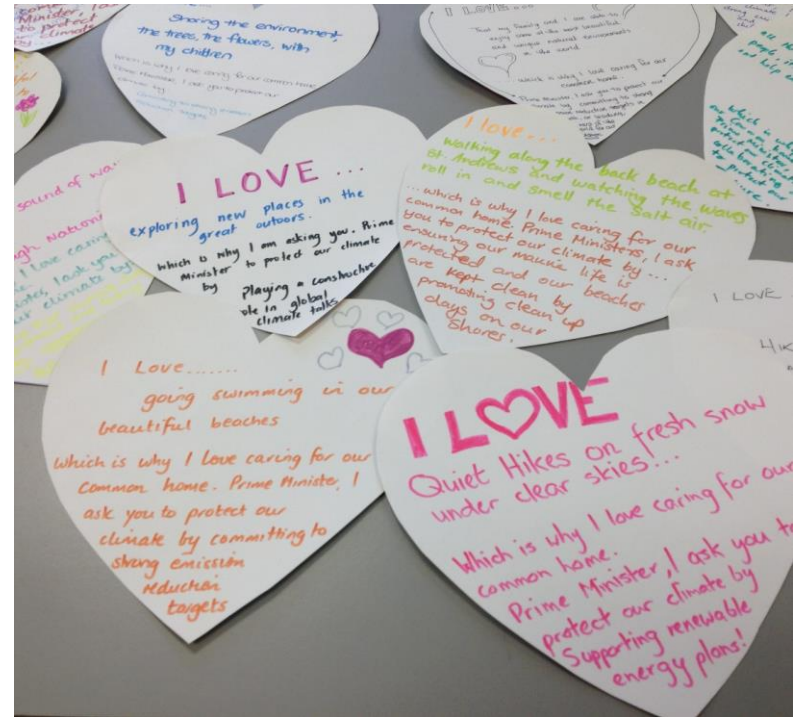 Minister, I a
to protect
Sharing the environment,
the trees, the flowers, with
my children
which is why I love caring for our common home
Prime Minister, I ask you to protect our
climate by
I LOVE...
That my family and I are able to
enjoy some of the most beautiful
and unique natural environments
in the world
which is why I love caring for our
common home.
Prime Minister, I ask you to protect our
climate by committing to strong
sound of
I love caring
I ask you
our climate by
I LOVE ...
exploring new places in the
great outoors.
which is why I am asking you. Prime
Minister to protect our climate
by
Playing a constructive
role in global
climate talks
I love...
Walking along the back beach at
St. Andrews and watching the waves
roll in and smell the salt air.
...which is why I love caring for our
common home. Prime Ministers, I ask
you to protect our climate by...
ensuring our marine life is
protected and our beaches
are kept clean by
promoting clean up
days on our
shores.
I LOVE
I Love.......
going swimming in our
beautiful beaches
Which is why I Love caring for our
Common home. Prime Minister, I
ask you to protect our
climate by committing to
strong emission
reduction
targets
I LOVE
Quiet Hikes on fresh snow
under clear skies...
Which is why I love caring for our
common home.
Prime Minister, I ask you to
protect our climate by
Supporting renewable
energy plans!